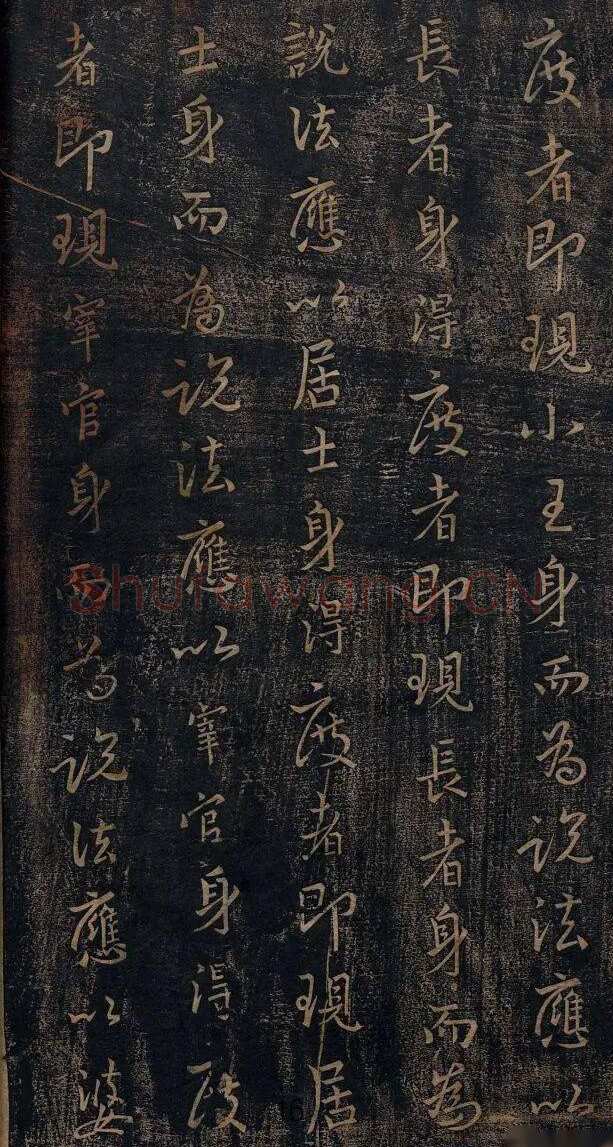 度者即現小王身而為説法應以
長者身得度者即現長者身而為
説法應以居士身得度者即現居
士身而為説法應以宰官身得度
者即現宰官身而為説法應以婆
Shufawang.CN
16